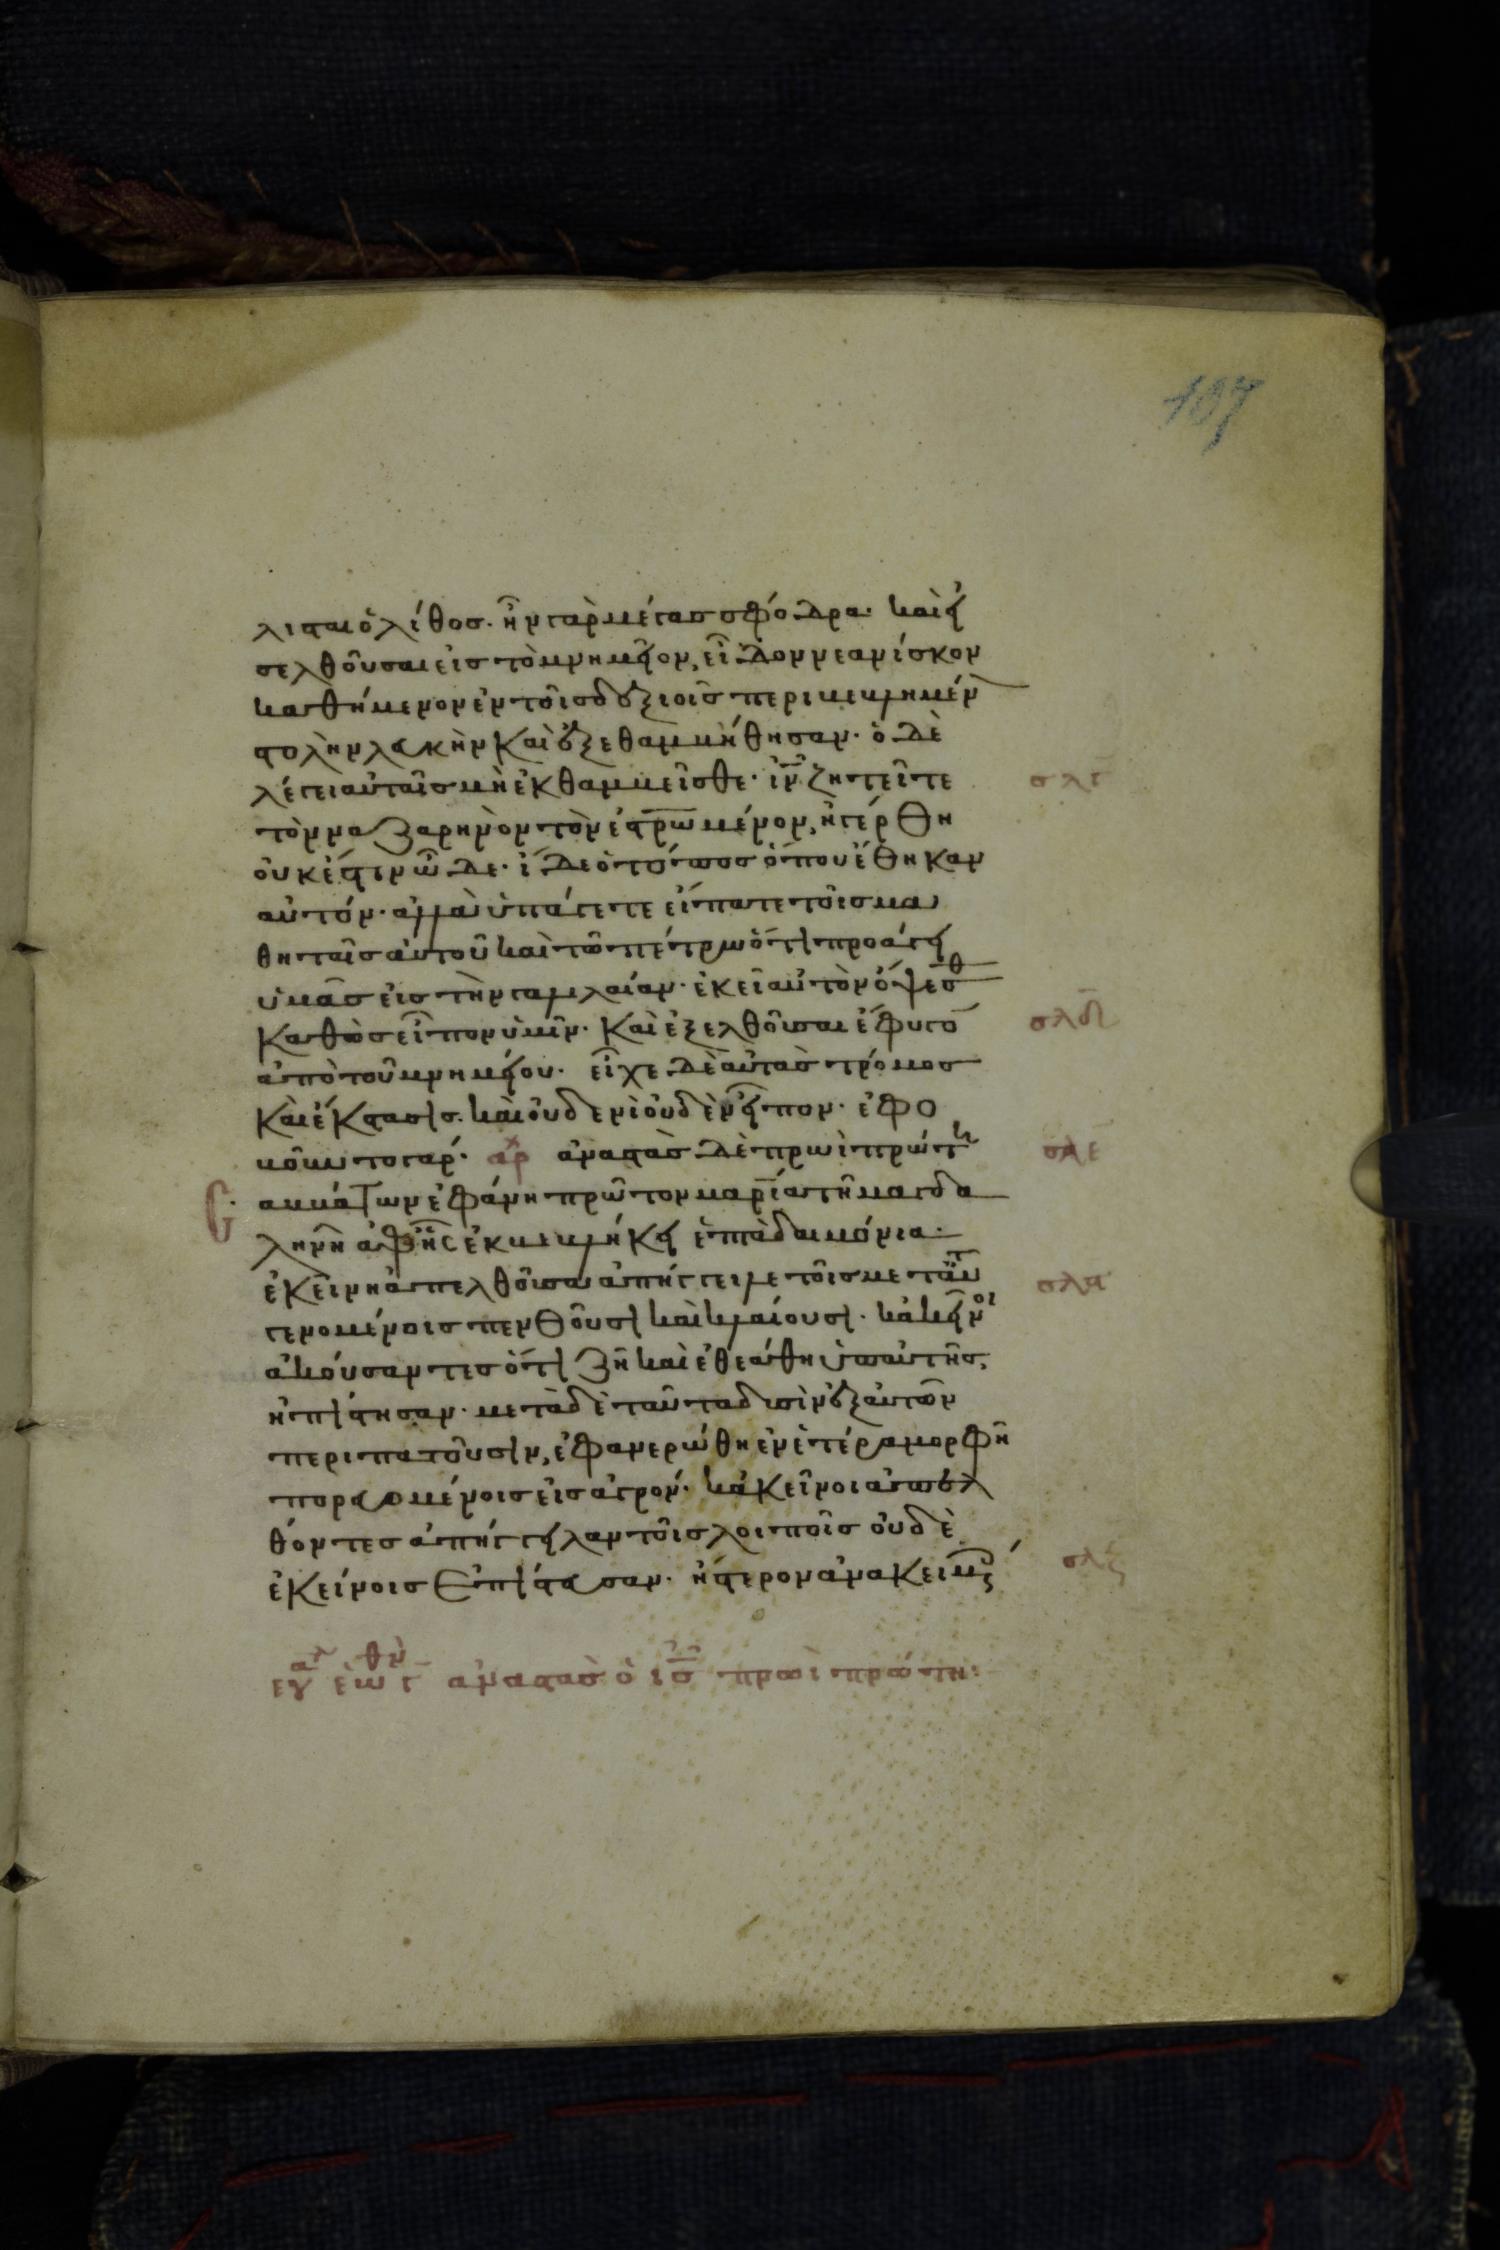 107
λισται ὁ λίθος· ἦν γὰρ μέγας σφόδρα· καὶ εἰ
σελθοῦσαι εἰς τὸ μνημεῖον, εἶδον νεανίσκον
καθήμενον ἐν τοῖς δεξιοῖς περιβεβλημέν
στολὴν λευκὴν καὶ ἐξεθαμβήθησαν· ὁ δὲ
λέγει αὐταῖς μὴ ἐκθαμβεῖσθε· ἰν ζητεῖτε
σλγ
τὸν ναζαρηνὸν τὸν ἐστρωμένον, ἠγέρθη
οὐκ ἔστιν ὧδε· ἴδε ὁ τόπος ὅπου ἔθηκαν
αὐτόν· ἀλλὰ ὑπάγετε εἴπατε τοῖς μα
θηταῖς αὐτοῦ καὶ τῶ πέτρω ὅτι προάγει
ὑμᾶς εἰς τὴν γαλιλαίαν· ἐκεῖ αὐτὸν ὄψεσθ
καθὼς εἶπον ὑμῖν· καὶ ἐξελθοῦσαι ἔφυγο
σλδ
ἀπὸ τοῦ μνημείου· εἶχε δὲ αὐτὰς τρόμος
καὶ ἔκστασις· καὶ οὐδενὶ οὐδὲν εἶπον· ἐφο
βοῦντο γάρ· αρχ ἀναστὰς δὲ πρωῒ πρώτη
σλε
σαββάτων ἐφάνη πρῶτον μαρία τῆ μαγδα
ληνῆ ἀφ' ἧς ἐκβεβλήκει ἑπτὰ δαιμόνια·
ἐκείνη ἀπελθοῦσα ἀπήγγειλε τοῖς μετ αὐτ
σλς
γενομένοις πενθοῦσι καὶ κλαίουσι· κἀκεῖνοι
ἀκούσαντες ὅτι ζῆ καὶ ἐθεάθη ὑπ αὐτῆς,
ἠπίστησαν· μετὰ δὲ ταῦτα δυσὶν ἐξ αὐτῶν
περιπατοῦσιν, ἐφανερώθη ἐν ἑτέρα μορφῆ
πορευομένοις εἰς ἀγρόν· κἀκεῖνοι ἀπελ
θόντες ἀπήγγειλαν τοῖς λοιποῖς οὐδὲ
ἐκείνοις ἐπίστευσαν· ὕστερον ἀνακειμς
σλζ
ευαγ ἑωθν γ ἀναστὰς ὁ ις πρωῒ πρώτη: